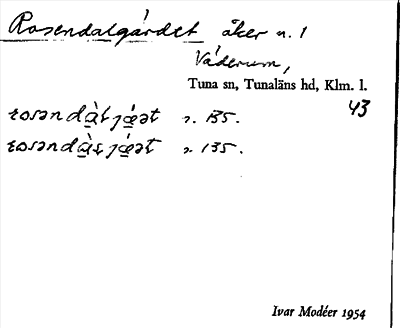 Rosendalgårdet åker n. 1
Våderum,
Tuna sn, Tunaläns hd, Klm. l.
43
n. 135.
n. 135.
Ivar Modéer 1954